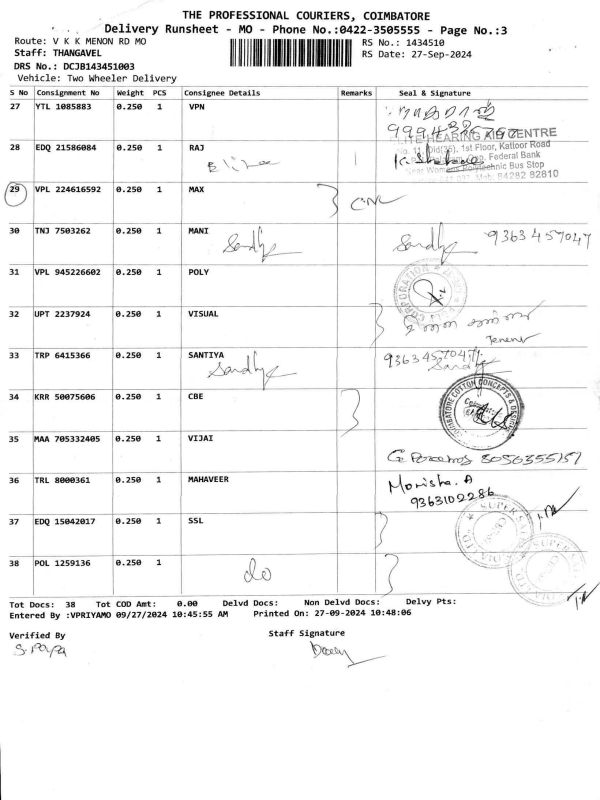 THE PROFESSIONAL COURIERS, COIMBATORE
Delivery Runsheet - MO - Phone No.:0422-3505555 - Page No.:3
Route: V K K MENON RD MO RS No.: 1434510
Staff: THANGAVEL RS Date: 27-Sep-2024
DRS No.: DCJB143451003
Vehicle: Two Wheeler Delivery
S No Consignment No Weight PCS Consignee Details Remarks Seal & Signature
27 YTL 1085883 0.250 1 VPN
28 EDQ 21586084 0.250 1 RAJ
ELITE HEARING AID CENTRE
1st Floor, Kattoor Road
Federal Bank
Near Womens Polytechnic Bus Stop
Mob: 84282 82810
29 VPL 224616592 0.250 1 MAX
30 TNJ 7503262 0.250 1 MANI
Sandhya Sandhya 9363457047
31 VPL 945226602 0.250 1 POLY
CORPORATION
32 UPT 2237924 0.250 1 VISUAL
33 TRP 6415366 0.250 1 SANTIYA
Sandhya 9363457047 Sandhya
34 KRR 50075606 0.250 1 CBE
COIMBATORE COTTON CONCEPTS & DESIGN
35 MAA 705332405 0.250 1 VIJAI
8056355157
36 TRL 8000361 0.250 1 MAHAVEER
Monisha. A
9363102286
37 EDQ 15042017 0.250 1 SSL
38 POL 1259136 0.250 1
do
Tot Docs: 38 Tot COD Amt: 0.00 Delvd Docs: Non Delvd Docs: Delvy Pts:
Entered By :VPRIYAMO 09/27/2024 10:45:55 AM Printed On: 27-09-2024 10:48:06
Verified By Staff Signature
S. Papa